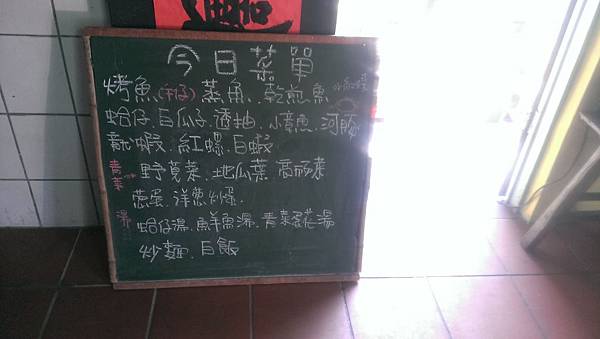 今日菜單
烤魚(市仔) 蒸魚、乾煎魚
蛤仔、白瓜子、透抽、小章魚、河豚
龍蝦、紅螺、白蝦
青菜 野莧菜、地瓜葉、高麗菜
蔥蛋、洋蔥炒蛋、
湯 蛤仔湯、鮮魚湯、青菜蛋花湯
炒麵、白飯